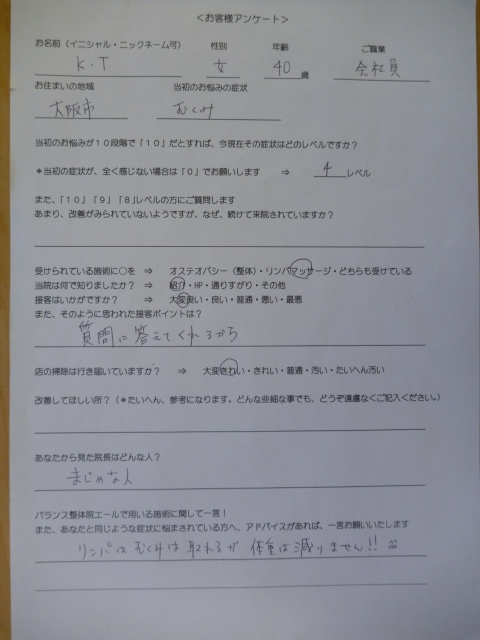 ＜お客様アンケート＞
お名前（イニシャル・ニックネーム可） 性別 年齢 ご職業
K.T 女 40 歳 会社員
お住まいの地域 当初のお悩みの症状
大阪市 むくみ
当初のお悩みが１０段階で「１０」だとすれば、今現在その症状はどのレベルですか？
＊当初の症状が、全く感じない場合は「０」でお願いします ⇒ 4 レベル
また、「１０」「９」「８」レベルの方にご質問します
あまり、改善がみられていないようですが、なぜ、続けて来院されていますか？
受けられている施術に○を ⇒ オステオパシー（整体）・リンパマッサージ・どちらも受けている
当院は何で知りましたか？ ⇒ 紹介・HP・通りすがり・その他
接客はいかがですか？ ⇒ 大変良い・良い・普通・悪い・最悪
また、そのように思われた接客ポイントは？
質問に答えてくれるから
店の掃除は行き届いていますか？ ⇒ 大変きれい・きれい・普通・汚い・たいへん汚い
改善してほしい所？（＊たいへん、参考になります。どんな些細な事でも、どうぞ遠慮なくご記入ください。）
あなたから見た院長はどんな人？
まじめな人
バランス整体院エールで用いる施術に関して一言！
また、あなたと同じような症状に悩まされている方へ、アドバイスがあれば、一言お願いいたします
リンパはむくみは取れるが 体重は減りません!!